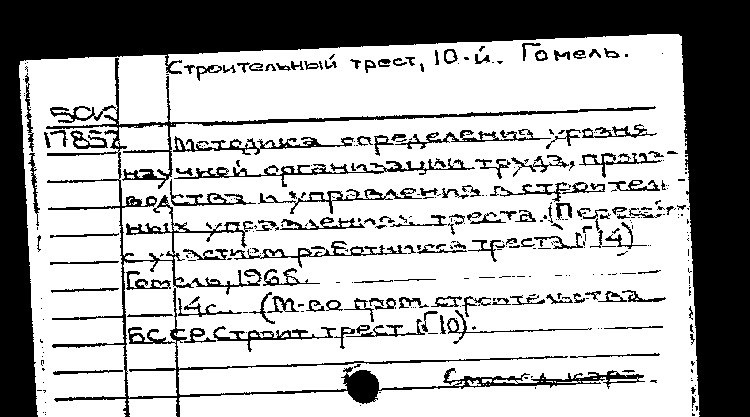 Строительный трест, 10-й. Гомель.
17852
Методика определения уровня
научной организации труда, произ-
водства и управления в строитель-
ных управлениях треста. (Пересм.
с участием работников треста №14)
Гомель, 1968.
14с. (М-во пром. строительства
БССР. Строит. трест №10).
См. след. карт.